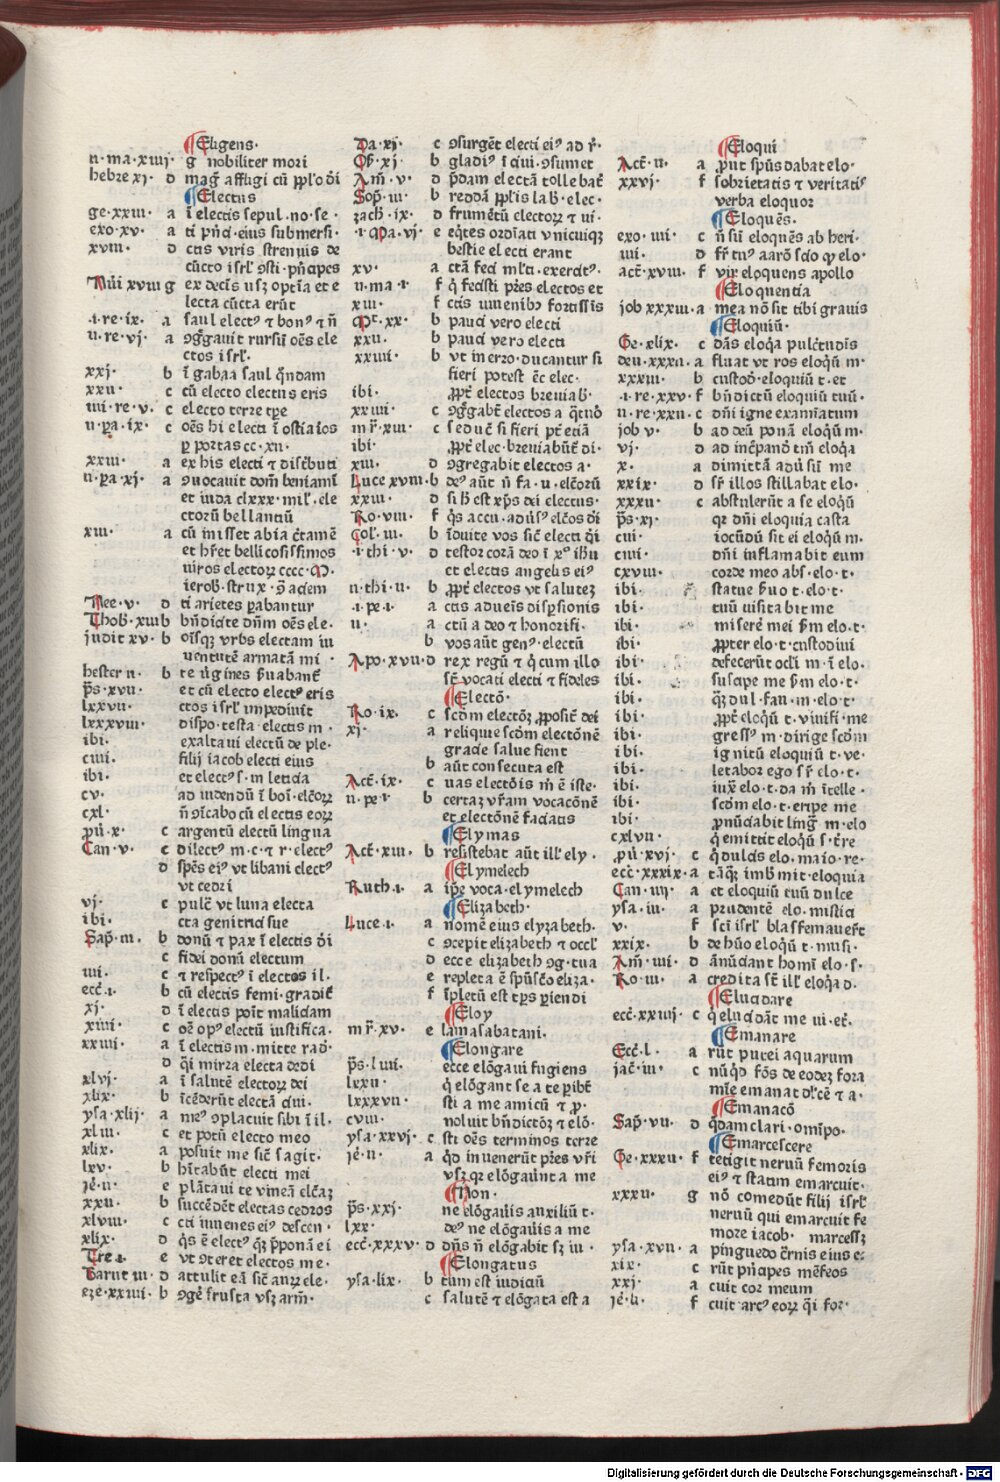 ¶Eligens·
n·ma·xiiij· g nobiliter mori
hebre xj· d mag̃ affligi cū pp̄lo d̄i
¶Electus
ge·xxiii· a ī electis sepul·no·se·
exo·xv· a ti pn̄cͥ·eius submersi·
xviii· d ctas viris strenuis de
cūcto isrl̄ ꝯsti·pn̄apes
Nūi xviii g ex decīs usꝫ optīa et e
lecta cūcta erūt
·i·re·ix· a saul electꝰ ⁊ bonꝰ ⁊ n̄
ii·re·vj· a ꝯg̃gauit rursū oēs ele
ctos isrl̄·
xxj· b ī gabaa saul q̄ndam
xxii· c cū electo electus eris
iiii·re·v· c electo terre tp̄e
ii·pa·ix· c oēs hi electi ī ostiaios
ꝑ portas cc·xii·
xxiii· a ex his electi ⁊ disc̄buti
ii·pa·xj· a ꝯuocauit dom̄ beniamī
et iuda clxxx·mil̄·ele
ctorū bellantiū
xiii· a cū inisset abia c̄tamē
et hr̄et bellicosissimos
uiros electoꝝ cccc·M·
ierob̄·strux·ꝯ̄ aciem
Nee·v· d ti arietes parabantur
Thob̄·xiii b bn̄dicite dn̄m oēs ele·
judit xv· b oīsqꝫ vrbs electam iu
uentutē armatā mi·
hester ii· b te ūgines s̄uabant̄
p̄s·xvii· et cū electo electꝰ eris
lxxvii· ctos isrl̄ impediuit
lxxxviii· dispo·testa·electis m·
ibi· exaltaui electū de ple·
ciiii· filij iacob electi eius
ibi· et electꝰ s·m leticia
cv· ad uidendū ī boī·elc̄oꝝ
cxl· n̄ ꝯīcabo cū electis eoꝝ
pū·x· c argentū electū lingua
Can·v· c dilectꝰ m·c·⁊ r·electꝰ
d spēs eiꝰ vt libani electꝰ
vt cedri
vj· c pulc̄ vt luna electa
ibi· cta genitrici sue
Sap̄·iii· b donū ⁊ pax ī electis d̄i
c fidei donū electum
iiii· c ⁊ respectꝰ ī electos il·
ecc̄·i· b cū electis femi·gradit̄
xj· d ī electis poīt maliciam
xiiii· c oẽ opꝰ electū iustifica·
xxiiii· a ī electis m·mitte rad̄·
d q̄i mirra electa dedi
xlvj· a ī salutē electoꝝ dei
xlix· b īcēderūt electā ciui·
ysa·xlij· a meꝰ ꝯplacuit sibi ī il·
xliii· c et potū electo meo
xlix· a posuit me sic̄ sagit·
lxv· b hītabūt electi mei
jē·ii· e plātaui te vineā elc̄aꝫ
xxii· b succēdēt electas cedros
xlviii· c cti iuuenes eiꝰ descen·
xlix· d q̄s ē electꝰ qꝫ p̄ponā ei
Tre·i· e vt ꝯtereret electos me·
Baruc iii· d attulit eā sic̄ auꝝ ele·
eze·xxiiii· b ꝯgē frusta vsꝫ arm̄·
Da·xj· c ꝯsurgēt electi eiꝰ ad r̄·
Ob̄·xj· b gladiꝰ ī ciui·ꝯsumet
Am̄·v· d p̄dam electā tollebat̄
Sop̄·iii· b reddā pp̄lis lab̄·elec·
zach̄·ix· d frumētū electoꝝ ⁊ ui·
·i·Ma·vj· e eq̄tes ordīati vnicuiqꝫ
bestie electi erant
xv· a ctā feci ml̄ti·exercitꝰ·
ii·ma·i· f q̄ fecisti p̄res electos et
xiii· f ctis iuuenibꝫ fortissīs
Mt̄·xx· b pauci vero electi
xxii· b pauci vero electi
xxiiii· b vt in erro·ducantur si
fieri potest ēc elec·
ibi· ꝓpt̄ electos breuiab̄·
xxiiii· c ꝯg̃gabt̄ electos a q̄tuō
mr̄·xiii· c seduc̄ si fieri pt̄ eciā
ibi· ꝓpt̄ elec·breuiabūt̄ di·
xiii· d ꝯgregabit electos a·
Luce xviii·b deꝰ aūt n̄ fa·u·elc̄orū
xxiii· d si h̄ est xp̄s dei electus·
Ro·viii· f q̄s accu·adūsꝰ elc̄os d̄i
Col̄·iii· b īduite vos sic̄ electi d̄i
·i·thi·v· d testor corā deo ī xꝰ ih̄u
et electis angelis eiꝰ
ii·thi·ii· b ꝓpt̄ electos vt salutez
·i·pe·i· a ctis adueīs disp̄sionis
ii· a ctū a deo ⁊ honorifi·
b vos aūt genꝰ·electū
Apo·xvii·d rex regū ⁊ q̄ cum illo
st̄ vocati electi ⁊ fideles
¶Electō·
Ro·ix· c scd̄m electōꝫ ꝓposit̄ dei
xj· a reliquie scd̄m electōnē
gracie salue fient
b aūt consecuta est
Act̄·ix· c uas electōis m̄ ē iste·
ii·pe·i· b certaꝫ vr̄am vocacōnē
et electōnē faciatis
¶Elymas
Act̄·xiii· b resistebat aūt ill̄ ely·
¶Elymelech
Ruth·i· a ip̄e voca·elymelech
¶Elizabeth·
Luce·i· a nomē eius elyzabeth·
c ꝯcepit elizabeth ⁊ occl̄
d ecce elizabeth ꝯg·tua
e repleta ē spūsc̄o eliza·
f īpletū est tp̄s ꝑiendi
¶Eloy
mr̄·xv· e lamasabatani·
¶Elongare
p̄s·liiii· ecce elōgaui fugiens
lxxii· q̄ elōgant se a te ꝑibt̄
lxxxvii· sti a me amicū ⁊ ꝓ·
cviii· noluit bn̄dictōꝫ ⁊ elō·
ysa·xxvj· c sti oēs terminos terre
jē·ii· a q̄d inuenerūt p̄res vr̄i
vsꝫ qꝛ elōgaūnt a me
¶Non·
p̄s·xxj· ne elōgaūis auxiliū t·
lxx· deꝰ ne elōgaūis a me
ecc̄·xxxv· d dn̄s n̄ elōgabit sꝫ iu·
¶Elongatus
ysa·lix· b tum est iudiciū
c salutē ⁊ elōgata est a
¶Eloqui
Act̄·ii· a ꝓut spūs dabat elo·
xxvj· f sobrietatis ⁊ veritatis
verba eloquor
¶Eloquēs·
exo·iiii· c n̄ sū eloquēs ab heri·
iiii· d fr̄ tuꝰ aarō scio qꝫ elo·
act̄·xviii· f vir eloquens apollo
¶Eloquentia
job xxxiii·a mea nō sit tibi grauis
¶Eloquiū·
Ge·xlix· c dās eloq̄a pulc̄tudīs
deu·xxxii·a fluat vt ros eloq̄ū m·
xxxiii· b custod̄·eloquiū t·et
·i·re·xxv·f bn̄dictū eloquiū tuū·
ii·re·xxii·c dn̄i igne examīatum
job v· b ad deū ponā eloq̄ū m·
vj· d ad īncp̄andū tm̄ eloq̄a
x· a dimittā adūsū me
xxix· d sr̄ illos stillabat elo·
xxxii· c abstulerūt a se eloq̄ū
p̄s·xj· qꝛ dn̄i eloquia casta
ciii· iocūdū sit ei eloq̄ū m·
ciiii· dn̄i inflamabit eum
cxviii· corde meo abs·elo·t·
ibi· statue s̄uo t·elo·t·
ibi· tuū uisitabit me
ibi· miserē mei s̄m elo·t·
ibi· ꝓpter elo·t·custodiui
ibi· defecerūt ocl̄i m·ī elo·
ibi· suscipe me s̄m elo·t·
ibi· qꝫ dul·fau·m·elo·t·
ibi· ꝓpt̄ eloq̄ū t·viuifi·me
ibi· gressꝰ m·dirige scd̄m
ibi· ignitū eloquiū t·ve·
ibi· letabor ego sr̄ elo·t·
ibi· iuxͣ elo·t·da m̄ ītelle·
ibi· scd̄m elo·t·eripe me
ibi· pnūciabit ling̃ m·elo
cxlvii· q̄ emittit eloq̄ū s·tr̄re
pū·xvj· c q̄ dulcis elo·maio·re·
ecc̄·xxxix·a tāqꝫ imb̄ mit·eloquia
Can·iiij· a et eloquiū tuū dulce
ysa·iii· a prudentē elo·mistici
v· f sc̄i isrl̄ blasfemauert̄
xxix· b de hūo eloq̄ū t·musi·
Am̄·iiii· d ānūciant homī elo·s·
Ro·iii· a credita st̄ ill̄ eloq̄a d·
¶Elucidare
ecc̄·xxiiij· c q̄ elucidāt me ui·et̄·
¶Emanare
Ecc̄·l· a rūt putei aquarum
jac̄·iii· c nūq̄d fōs de eodeꝫ fora
mīe emanat dl̄cē ⁊ a·
¶Emanacō
Sap̄·vii· d q̄dam clari·omīpo·
¶Emarcescere
Ge·xxxii· f tetigit neruū femoris
eiꝰ ⁊ statim emarcuit·
xxxii· g nō comedūt filij isrl̄
neruū qui emarcuit fe
more iacob· marcessꝫ
ysa·xvii· a pinguedo c̄rnis eiꝰ e·
xix· c rūt pn̄apes mēfeos
xxj· a cuit cor meum
jē·li· f cuit arcꝰ eoꝝ q̄i for·
Digitalisierung gefördert durch die Deutsche Forschungsgemeinschaft · DFG